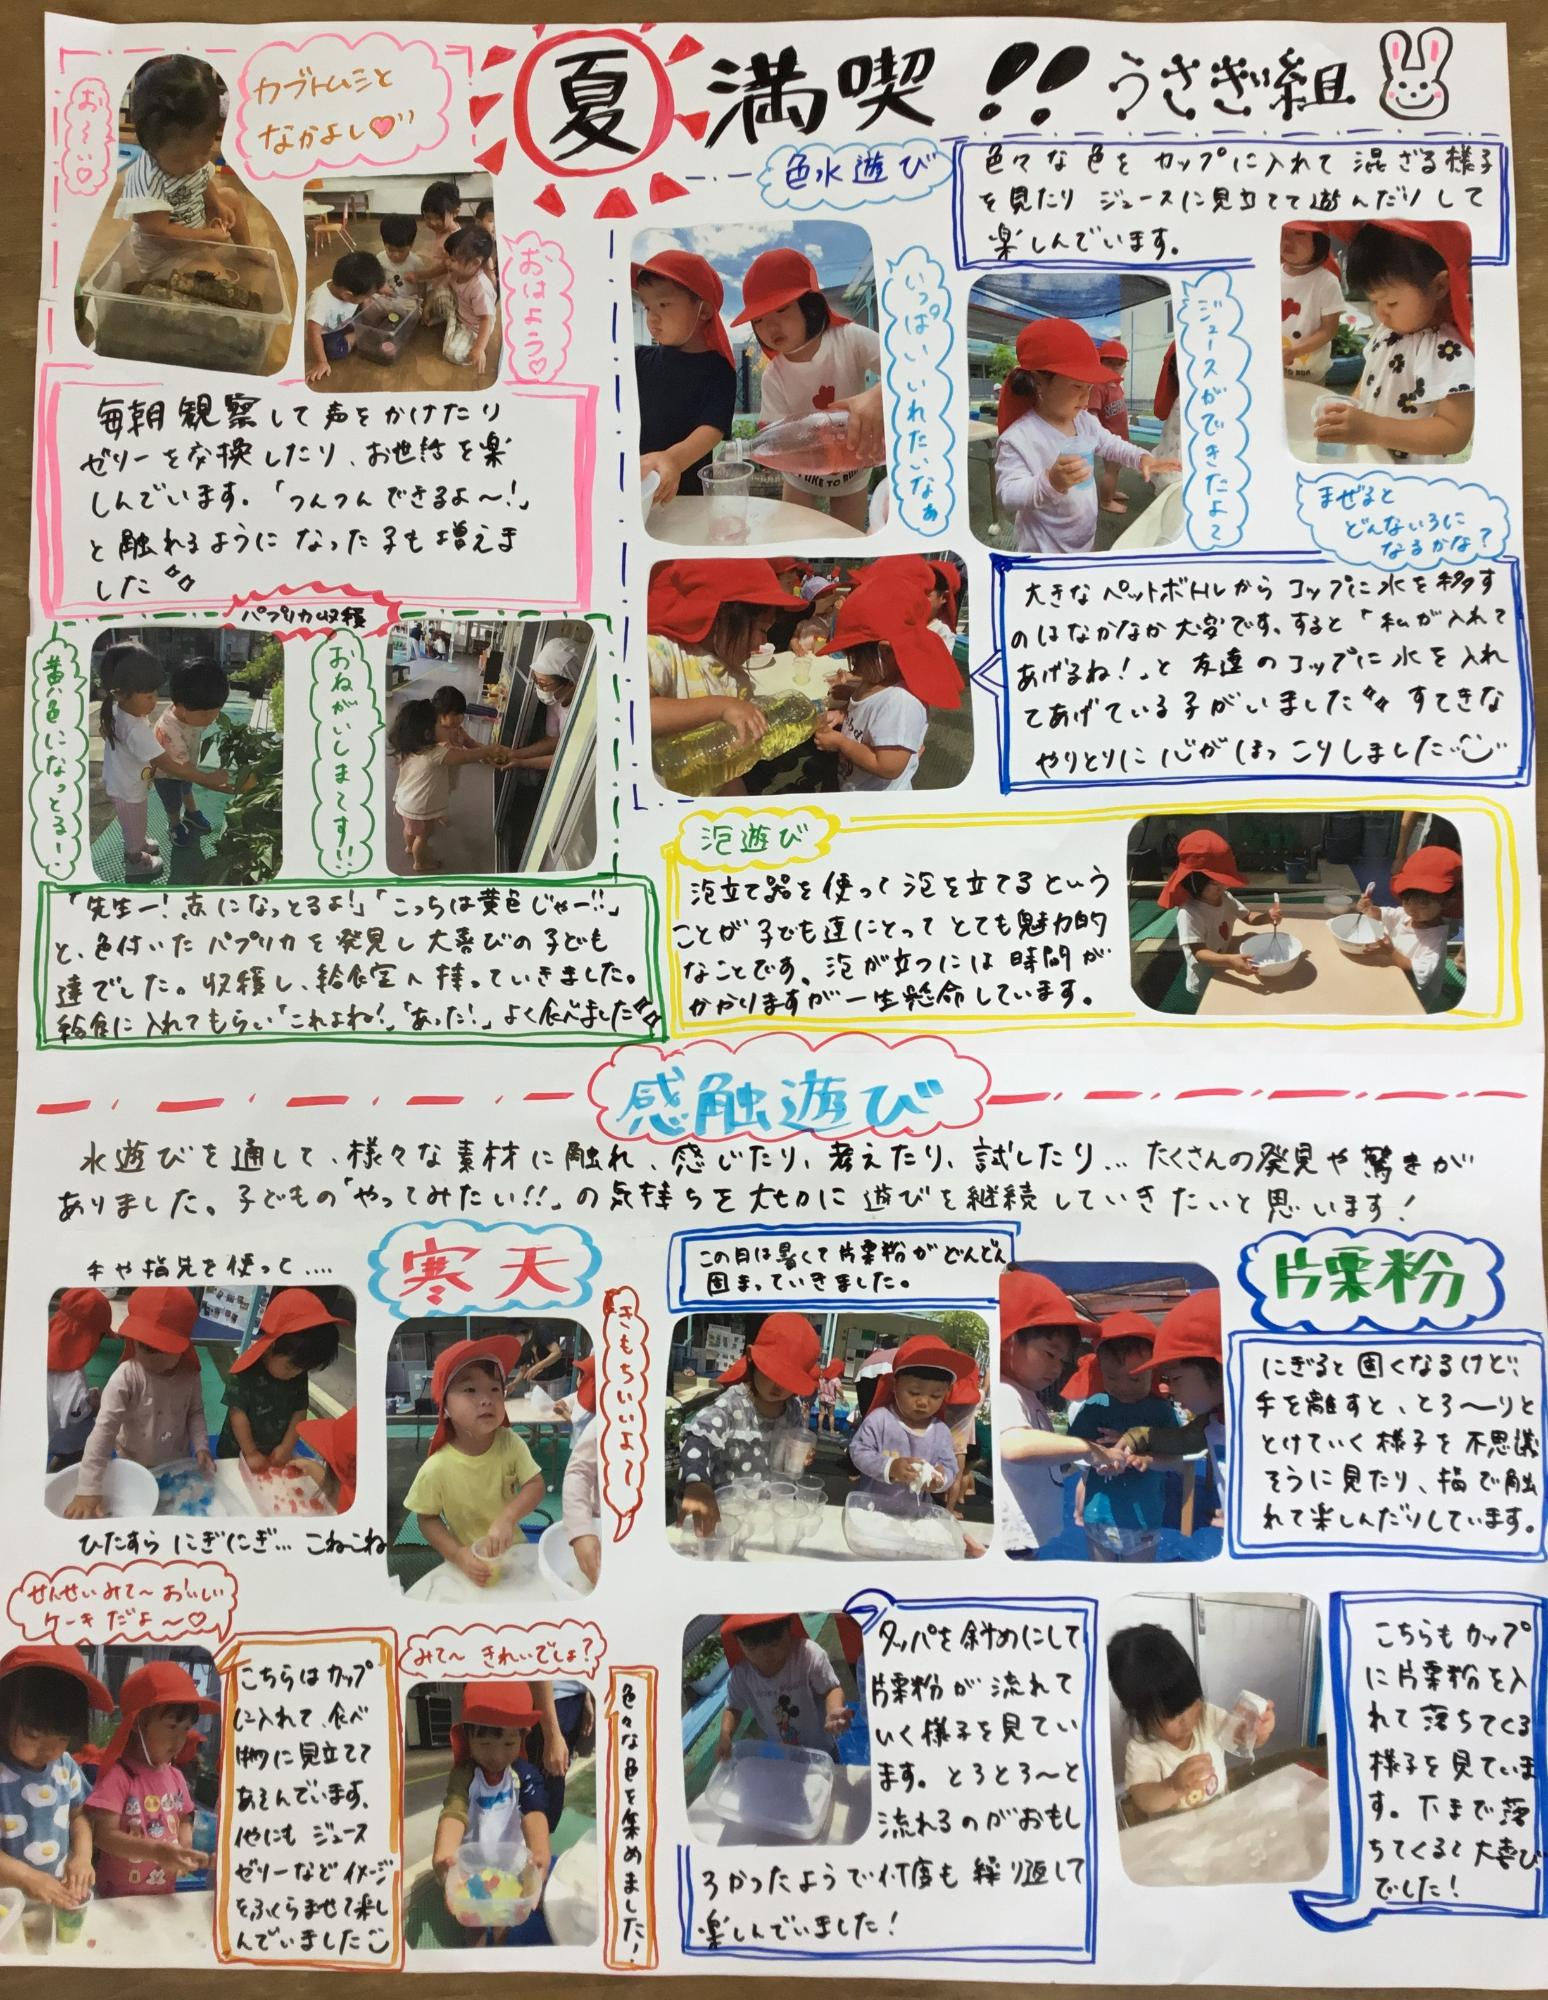 夏満喫!! うさぎ組
お〜い♡
カブトムシと
なかよし♡
おはよう♡
毎朝観察して声をかけたり
ゼリーを交換したり、お世話を楽
しんでいます。「つんつんできるよ〜!」
と触れるようになった子も増えま
した
パプリカ収穫
黄色になっとる!
おねがいしまてす!!
「先生ー!赤になっとるよ!」「こっちは黄色じゃー!!」
と、色付いたパプリカを発見し大喜びの子ども
達でした。収穫し、給食室へ持っていきました。
給食に入れてもらい「これよね!」「あった!」よく食べました
色水遊び
色々な色をカップに入れて混ざる様子
を見たりジュースに見立てて遊んだりして
楽しんでいます。
いっぱいいれたいなぁ
ジュースができたよて
まぜると
どんないろに
なるかな?
大きなペットボトルからコップに水を移す
のはなかなか大変です。すると「私が入れて
あげるね!」と友達のコップに水を入れ
てあげている子がいました すてきな
やりとりに心がほっこりしました
泡遊び
泡立て器を使って泡を立てるという
ことが子ども達にとってとても魅力的
なことです。泡が立つには時間が
かかりますが一生懸命しています。
感触遊び
水遊びを通して、様々な素材に触れ、感じたり、考えたり、試したり...たくさんの発見や驚きが
ありました。子どもの「やってみたい!!」の気持ちを大切に遊びを継続していきたいと思います!
寒天
手や指先を使って....
きもちいいよて
ひたすらにぎにぎ...こねこね
せんせいみて〜おいしい
ケーキだよ〜♡
こちらはカップ
に入れて、食べ
物に見立てて
あそんでいます。
他にもジュース
ゼリーなどイメージ
をふくらませて楽し
んでいました
みて〜きれいでしょ?
色々な色を集めました!
片栗粉
この日は暑くて片栗粉がどんどん
固まっていきました。
にぎると固くなるけど、
手を離すと、とろ〜りと
とけていく様子を不思議
そうに見たり、指で触
れて楽しんだりしています。
タッパを斜めにして
片栗粉が流れて
いく様子を見てい
ます。とろとろ〜と
流れるのがおもし
ろかったようで何度も繰り返して
楽しんでいました!
こちらもカップ
に片栗粉を入
れて落ちてくる
様子を見ていま
す。下まで落
ちてくると大喜び
でした!